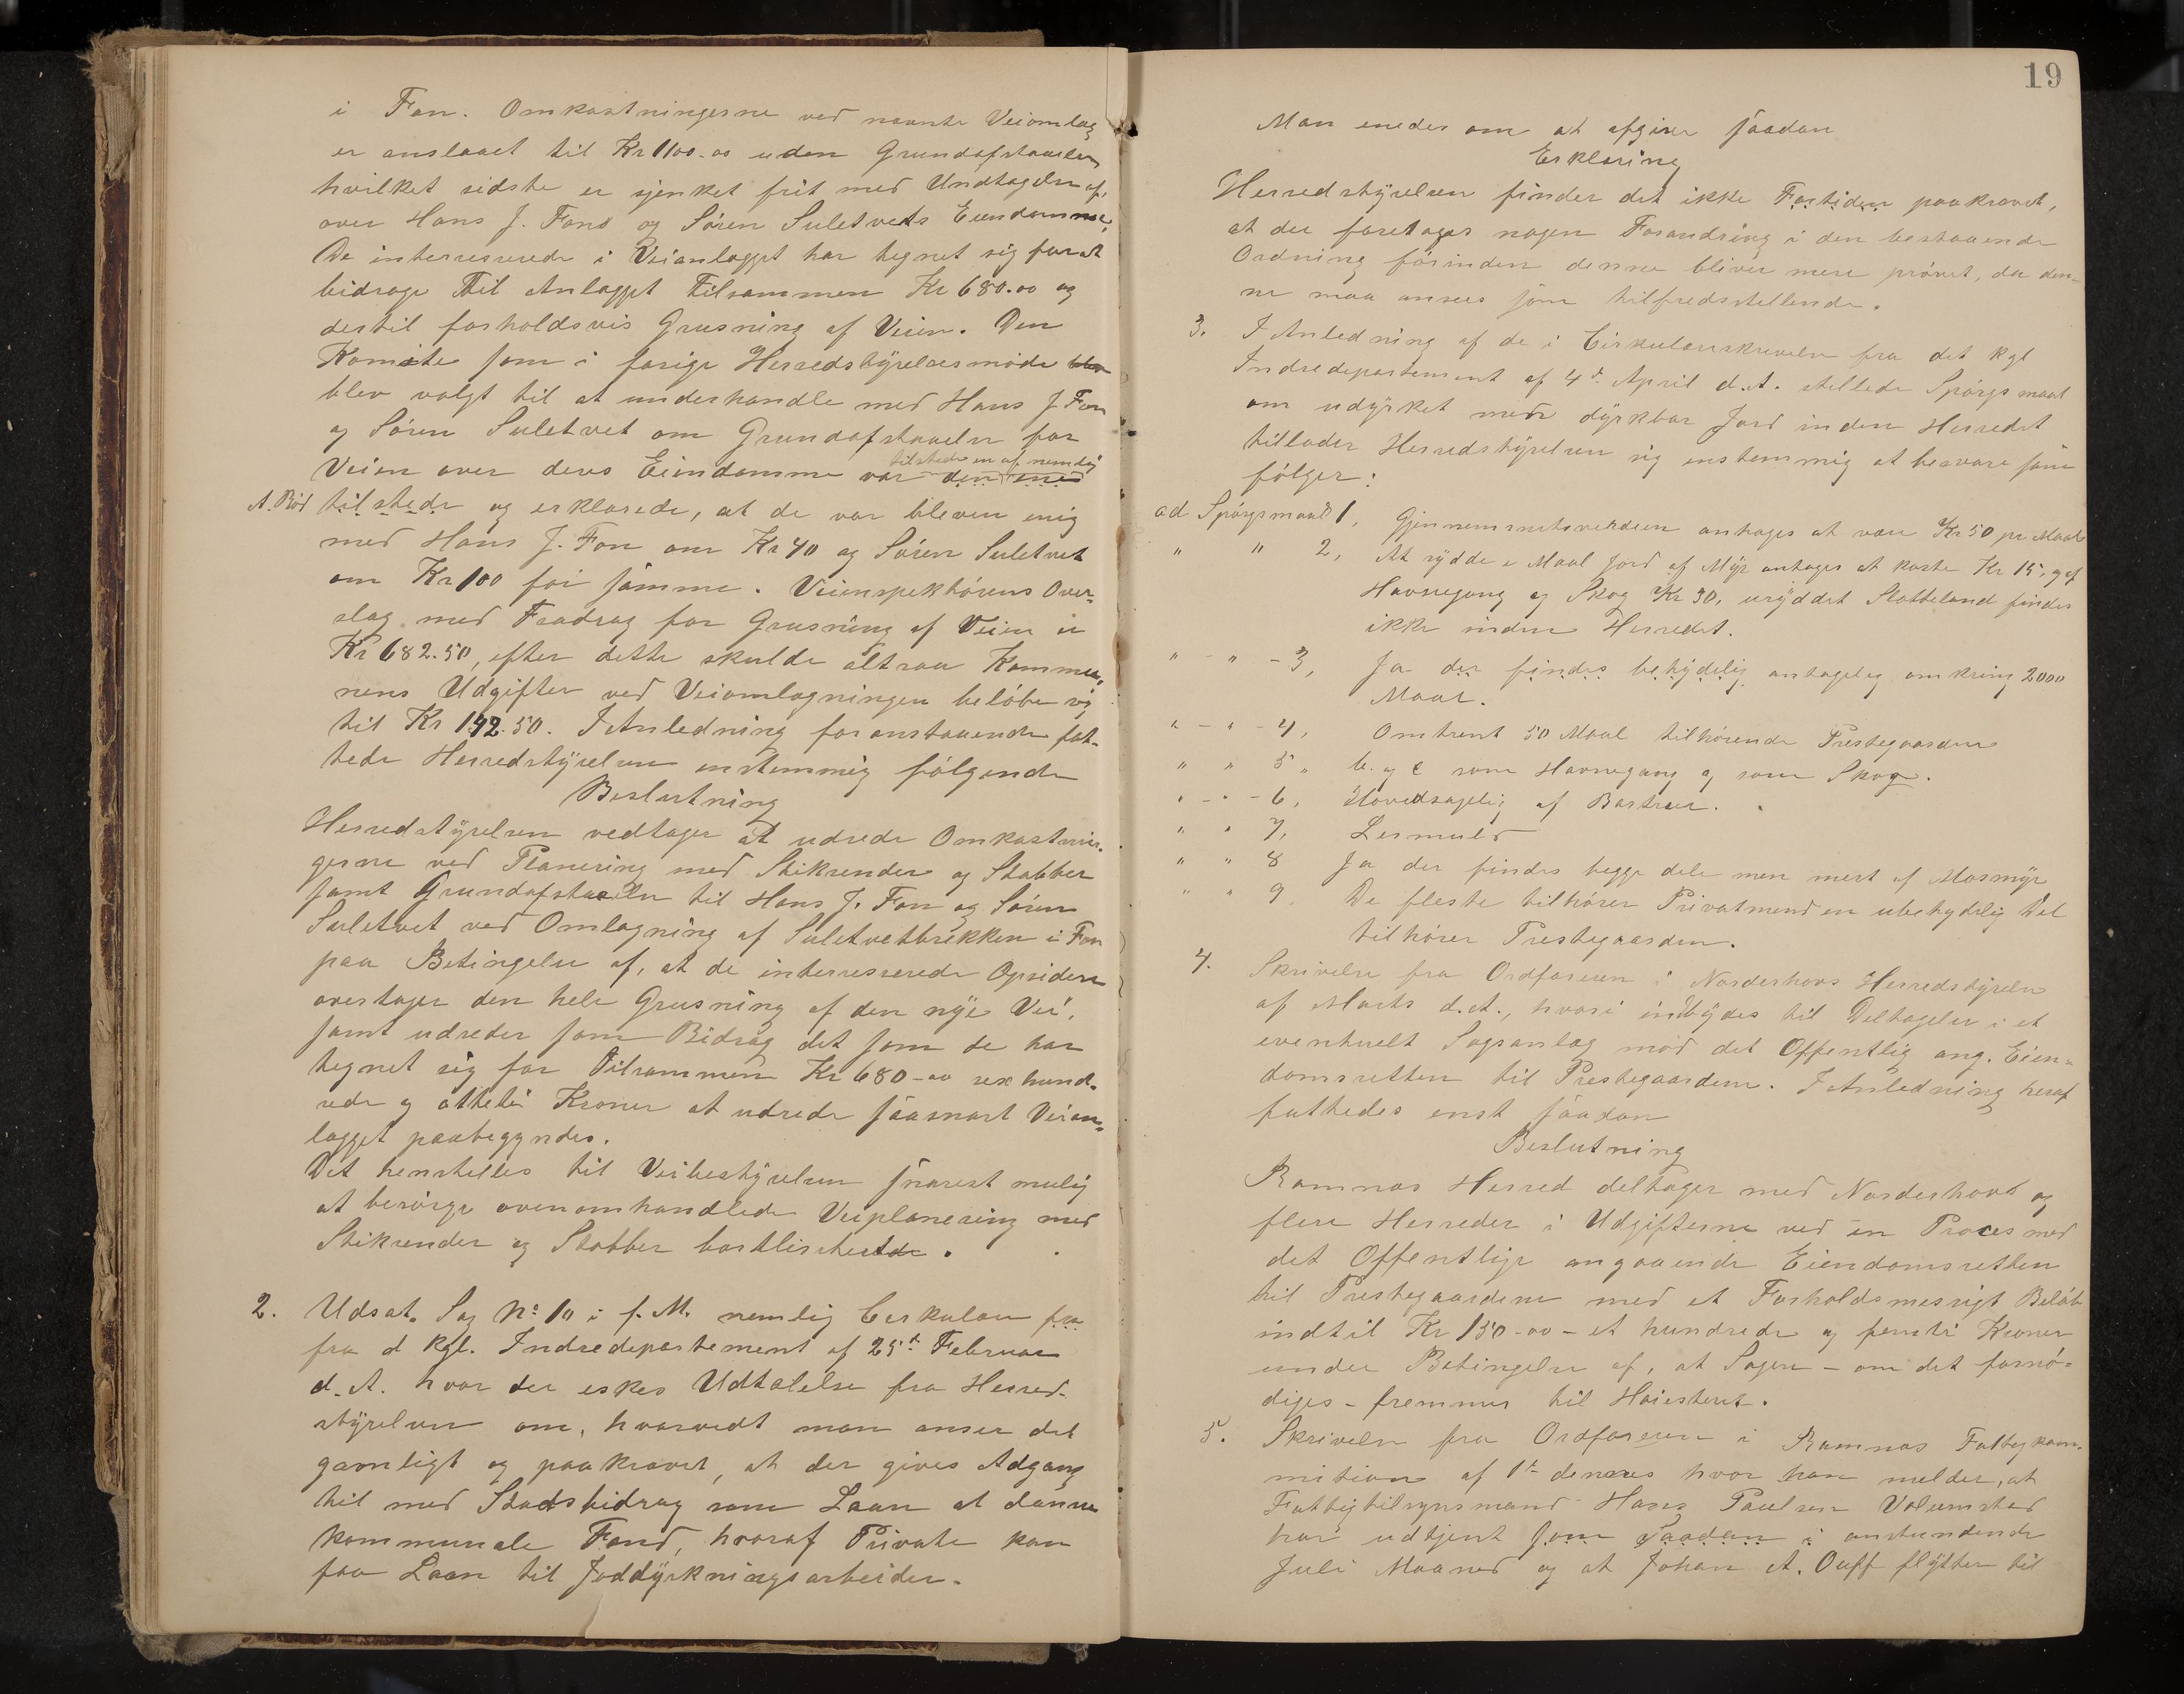 i Fon. Omkostningerne ved nævnte Veiomlæg
er anslaaet til Kr 1100.00 uden Grundafstaaelse
hvilket sidste er sjenket frit med Undtagelse af,
over Hans J. Fons og Søren Suletvets Eiendomme,
De interresserede i Veianlægget har tegnet sig for at
bidrage Til Anlægget Tilsammen Kr 680.00 og
dertil forholdsvis Grusning af Veien. Den
Komite som i forige Herredstyrelsesmøde blev
blev valgt til at underhandle med Hans J Fon
og Søren Suletvet om Grundafstaaelse for
tilstede en af nemlig
Veien over deres Eiendomme var den ene
A. Rød tilstede og erklærede, at de var bleven enig
med Hans J. Fon om Kr 40 og Søren Suletvet
om Kr 100 for samme. Veiinspektørens Over-
slag med Fradrag for Grusning af Veien er
Kr 682.50, efter dette skulde altsaa Kommu-
nens Udgifter ved Veiomlægningen beløbe sig
til Kr 142.50. I Anledning foranstaaende fat-
tede Herredstyrelsen enstemmig følgende
Beslutning
Herredstyrelsen vedtager at udrede Omkostnin-
gerne ved Planering med Stikrender og Stabber
samt Grundafstaaelse til Hans J. Fon og Søren
Suletvet ved Omlægning af Suletvetbrekken i Fon
paa Betingelse af, at de interresserede Opsiddere
overtager den hele Grusning af den nye Vei,
samt udreder som Bidrag det som de har
tegnet sig for Tilsammen Kr 680-00 sex hund-
rede og otteti Kroner at udrede saasnart Veian-
lægget paabegyndes.
Det henstilles til Veibestyrelsen snarest mulig
at besørge ovenomhandlede Veiplanering med
Stikrender og Stabber bortlisterede.
2. Udsat. Sag No 10 i f. M. nemlig Cerkulære fra
fra d kgl. Indredepartement af 25de Februar
d. A. hvor der eskes Udtalelse fra Herred-
styrelsen om, hvorvidt man anser det
gavnligt og paakrævet, at der gives Adgang
til med Stadsbidrag som Laan at danne
kommunale Fond, hvoraf Private kan
faa Laan til Joddyrkningsarbeider.
19
Man enedes om at afgive saadan
Erklæring
Herredstyrelsen finder det ikke Fortiden paakrævet,
at der foretages nogen Forandring i den bestaaende
Ordning førinden denne bliver mere prøvet, da den-
ne maa ansees som tilfredsstillende.
3. I Anledning af de i Cirkulæreskrivelse fra det kgl
Indredepartement af 4de April d. A. stillede Spørgsmaal
om udyrket men dyrkbar Jord inden Herredet
tillader Herredstyrelsen sig enstemmig at besvare som
følger:
ad Spørgsmaal 1, Gjennemsnitsverdien antages at være Kr 50 pr Maal
" " 2, At rydde 1 Maal Jord af Myr antages at koste Kr 15, og af
Havnegang og Skog Kr 30, uryddet Slotteland findes
ikke inden Herredet.
" - " - 3, Ja der findes betydelig antagelig omkring 2000
Maal.
" - " - 4, Omtrent 50 Maal tilhørende Prestegaarden
" " 5 " b. og c som Havnegang og som Skog.
" - " - 6, Hovedsagelig af Bartrær.
" " 7, Lermuld
" " 8 Ja der findes begge dele men mest af Mosmyr
" " 9. De fleste tilhører Privatmend en ubetydelig Del
tilhører Prestegaarden.
4. Skrivelse fra Ordføreren i Norderhovs Herredstyrelse
af Marts d. A., hvori indbydes til Deltagelse i et
eventuelt Sagsanlæg mod det Offentlig ang. Eien-
domsretten til Prestegaardene. I Anledning heraf
fattedes enst saadan
Beslutning
Ramnæs Herred deltager med Norderhovs og
flere Herreder i Udgifterne ved en Proces med
det Offentlige angaaende Eiendomsretten
til Prestegaardene med et Forholdsmessigt Beløb
indtil Kr 150-00 - et hundrede og femti Kroner
under Betingelse af, at Sagen - om det fornø-
diges - fremmes til Høiesteret.
5. Skrivelse fra Ordføreren i Ramnæs Fattigkom-
mition af 1ste dennes hvor han melder, at
Fattigtilsynsmand Hans Paulsen Volumstad
har udtjent som saadan i anstundende
Juli Maaned og at Johan A. Ouff flytter til